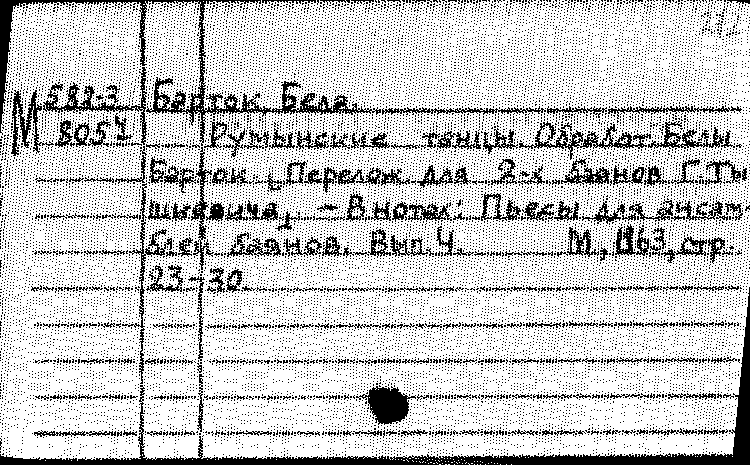 М 582-3 Барток, Бела.
805 Румынские танцы. Обработ. Белы
Барток. [Перелож. для 2-х баянов Г. Ты
шкевича]. - В нотах: Пьесы для ансам-
блей баянов. Вып. 4. М., 1963, стр.
23-30.